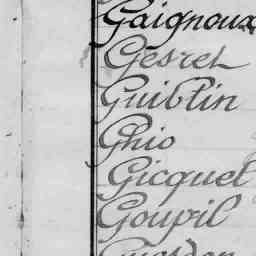 Gaignoux
Gesret
Guiblin
Ghio
Gicquel
Goupil